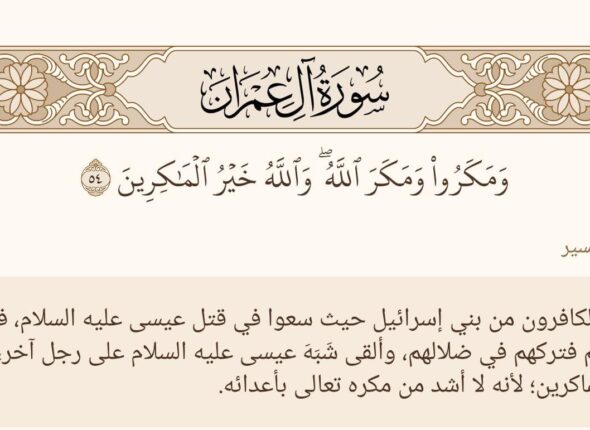 سُورَةُ آلِ عِمْرَانَ
وَمَكَرُواْ وَمَكَرَ ٱللَّهُۖ وَٱللَّهُ خَيْرُ ٱلْمَٰكِرِينَ ٥٤
سير
لكافرون من بني إسرائيل حيث سعوا في قتل عيسى عليه السلام، ف
م فتركهم في ضلالهم، وألقى شَبَهَ عيسى عليه السلام على رجل آخر،
ماكرين؛ لأنه لا أشد من مكره تعالى بأعدائه.